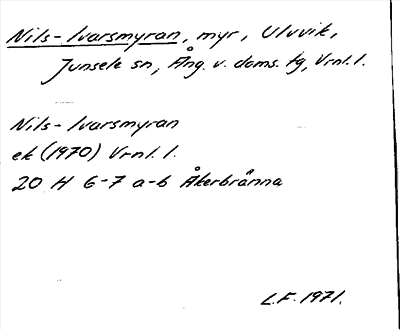 Nils-Ivarsmyran, myr, Uluvik,
Junsele sn, Ång. v. doms. tg, Vrnl. l.
Nils-Ivarsmyran
ek (1970) Vrnl. l.
20 H 6-7 a-b Åkerbränna
L.F. 1971.